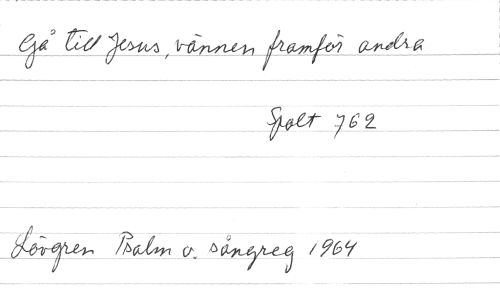 Gå till Jesus, vännen framför andra
Spalt 762
Lövgren Psalm o. sångreg 1964